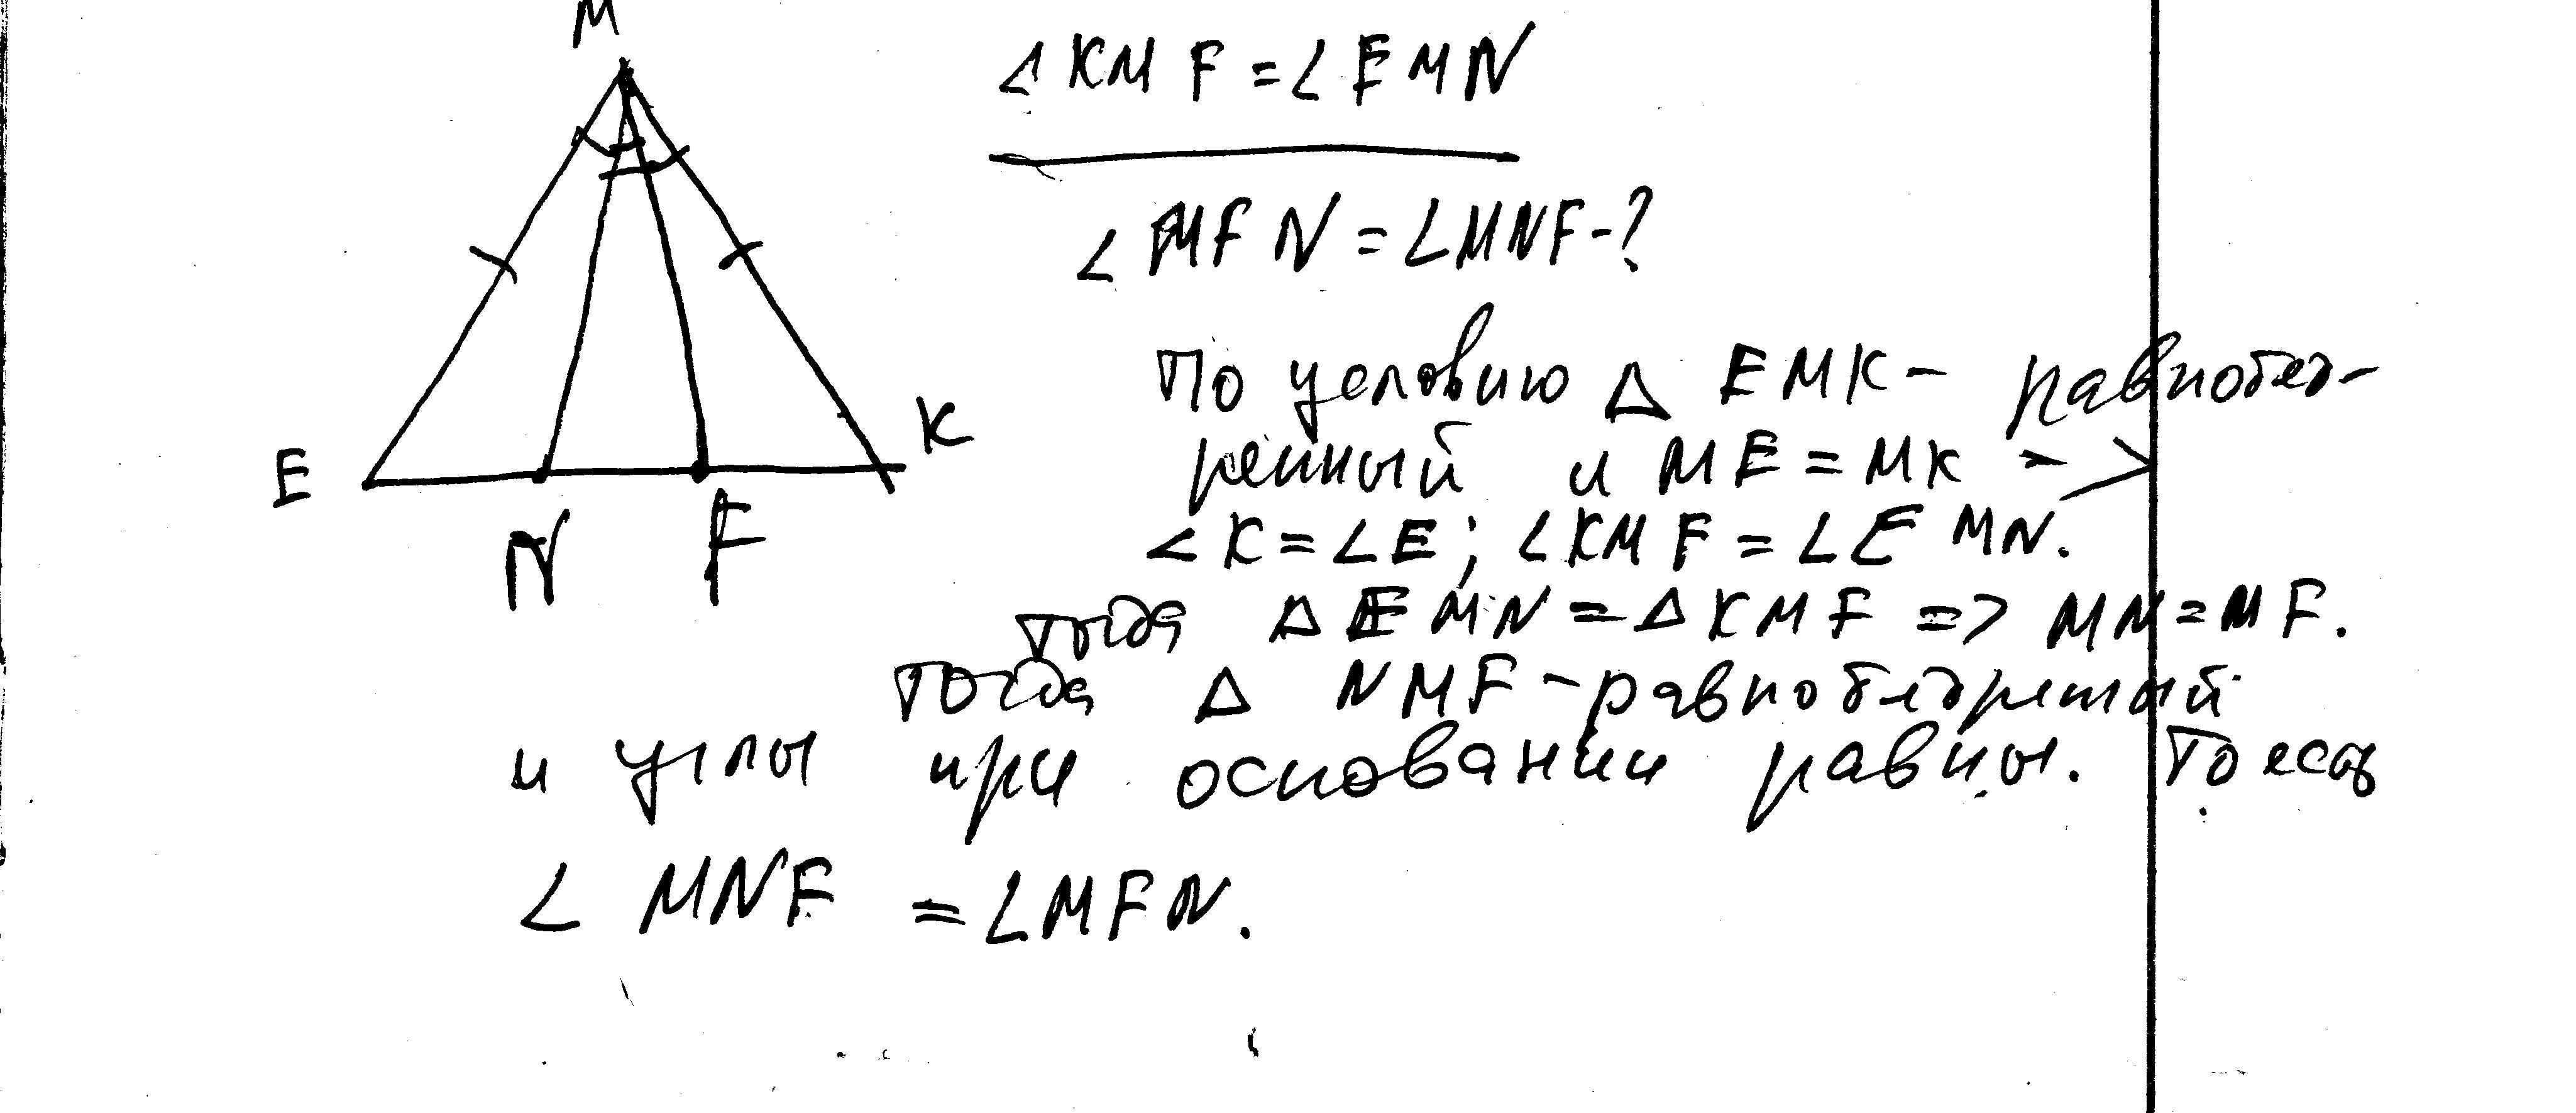 M
∠KMF=∠EMN
∠MFN=∠MNF-?
По условию △ EMK- равнобед-
ренный и ME=MK ->
K
E
∠K=∠E; ∠KMF=∠EMN.
N F
тогда △EMN=△KMF => MN=MF.
Тогда △ NMF-равнобедренный
и углы при основании равны. То есть
∠ MNF =∠MFN.